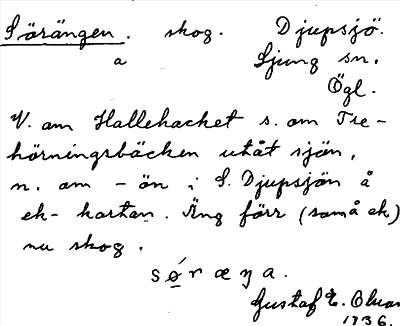 Sörängen. skog. Djupsjö.
a Ljung sn.
Ögl.
V. om Hallehacket s. om Tre-
hörningsbäcken utåt sjön,
n. om - ön i S. Djupsjön å
ek-kartan. Äng förr (som å ek)
nu skog.
sø´ræŋa.
Gustaf E.
1936.